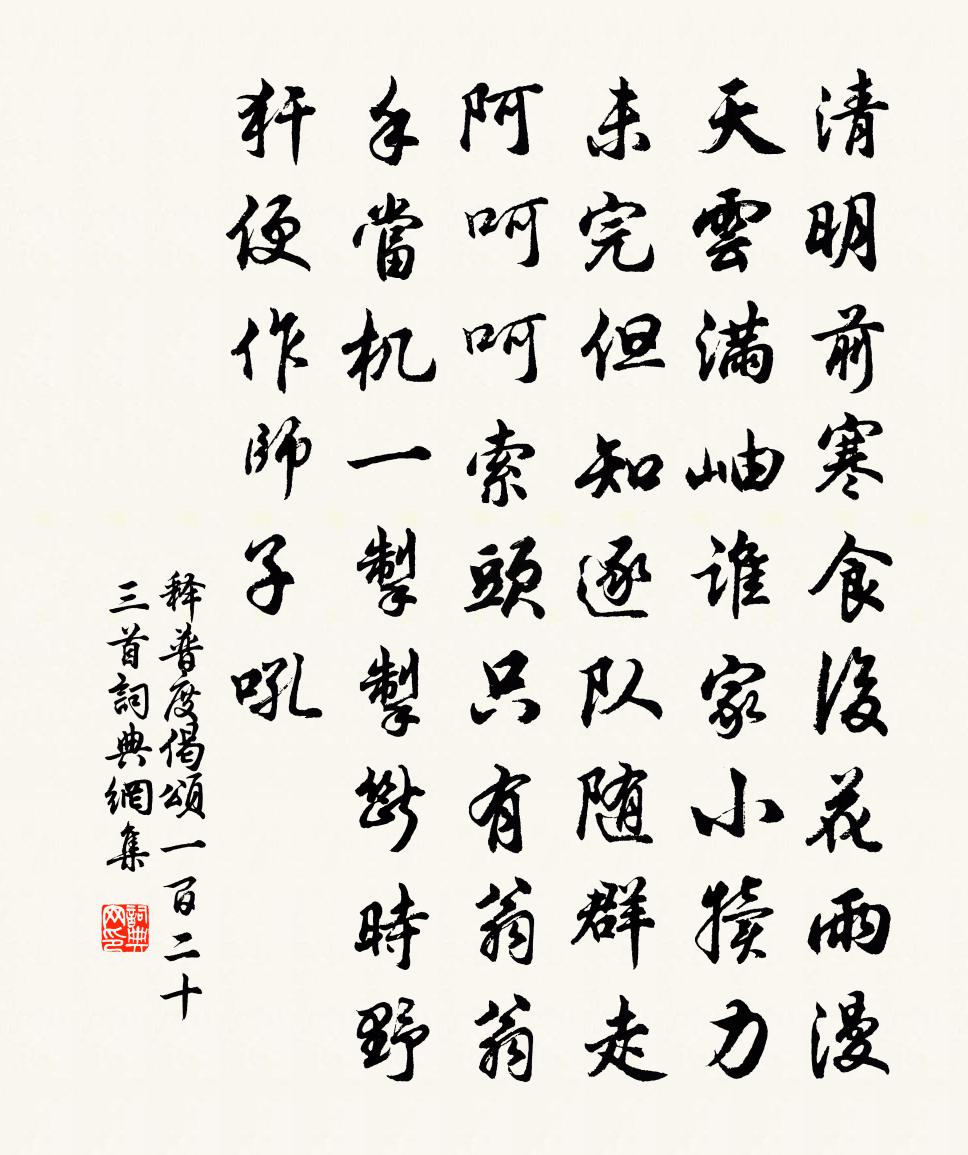 清明前寒食後花雨漫
天雲滿岫誰家小犢力
未完但知逐队随群走
阿呵呵索頭只有翁翁
手當机一掣掣斷時野
犴便作師子吼
释普度偈頌一百二十
三首詞典網集
詞典网印